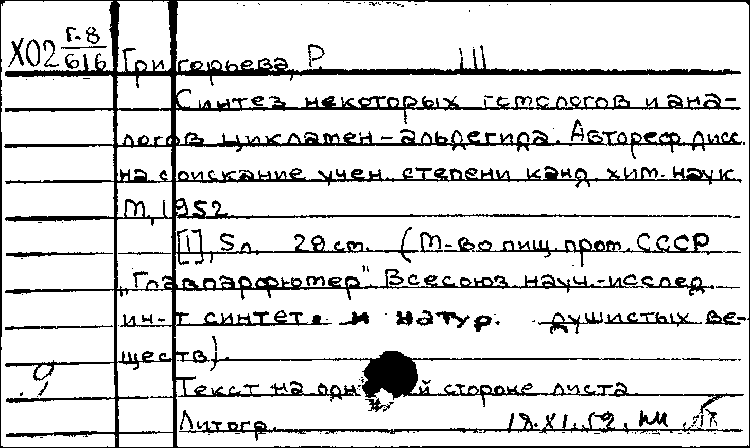 Х02 Г-8/616 Григорьева, Р. III
Синтез некоторых гомологов и ана-
логов цикламен-альдегида. Автореф. дисс.
на соискание учен. степени канд. хим. наук
М, 1952
[1], 5 л. 28 ст. (М-во пищ. пром. СССР
„Главпарфюмер". Всесоюз. науч.-исслед.
ин-т синтет. и натур. душистых ве-
ществ).
9 Текст на одной стороне листа
Литогр. 18.XI.52.